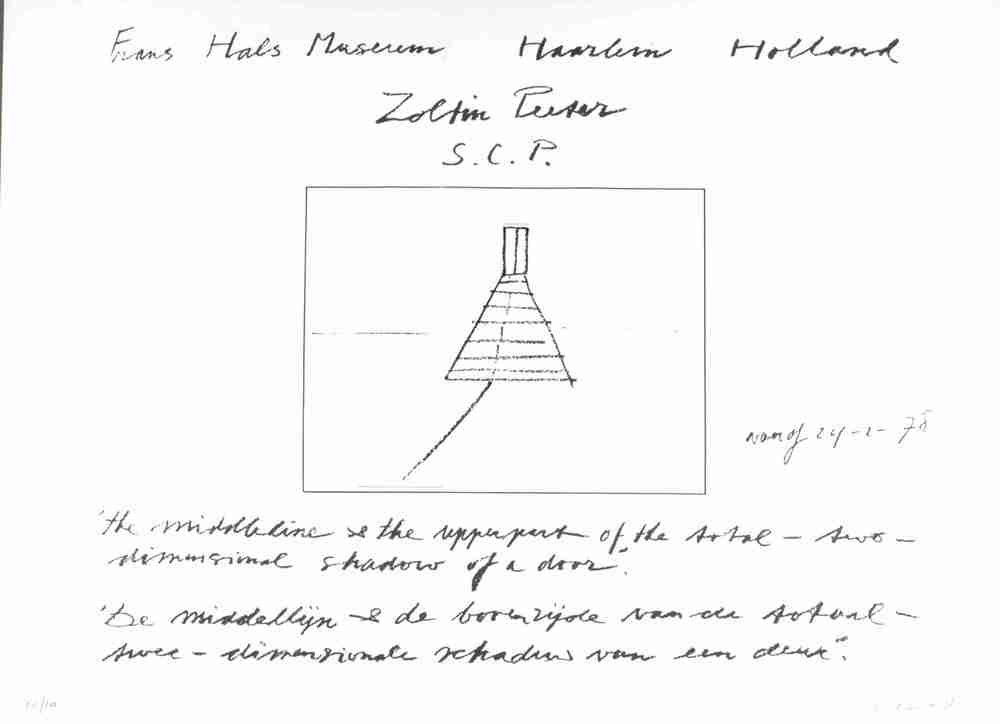 Frans Hals Museum Haarlem Holland
Zoltin Peeter
S.C.P.
vanaf 24-2-78
"the middleline is the upperpart of the total – two –
dimensional shadow of a door".
"De middellijn is de bovenzijde van de totaal –
twee – dimensionale schaduw van een deur".